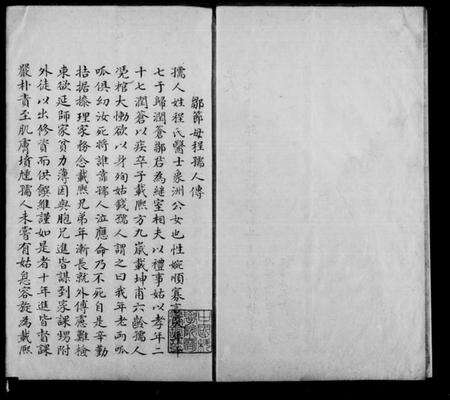 鄒節母程孺人傳
孺人姓程氏醫士象洲公女也性婉順寡言笑年十
七于歸潤蒼鄒君為繼室相夫以禮事姑以孝年二
十七潤蒼以疾卒子載熙方九歲載坤甫六齡孺人
凭棺大慟欲以身殉姑錢孺人謂之曰我年老而
呱俱幼汝死將誰靠孺人泣應命乃不死自是辛勤
拮据操理家務念載熙兄弟年漸長就外傅慮難檢
束欲延師家貧力薄因與胞兄進皆謀到家課甥附
外徒以出修膏而供饌維謹如是者十年進皆督課
嚴朴責至肌膚墳腫孺人未嘗有姑息容旋為載熙